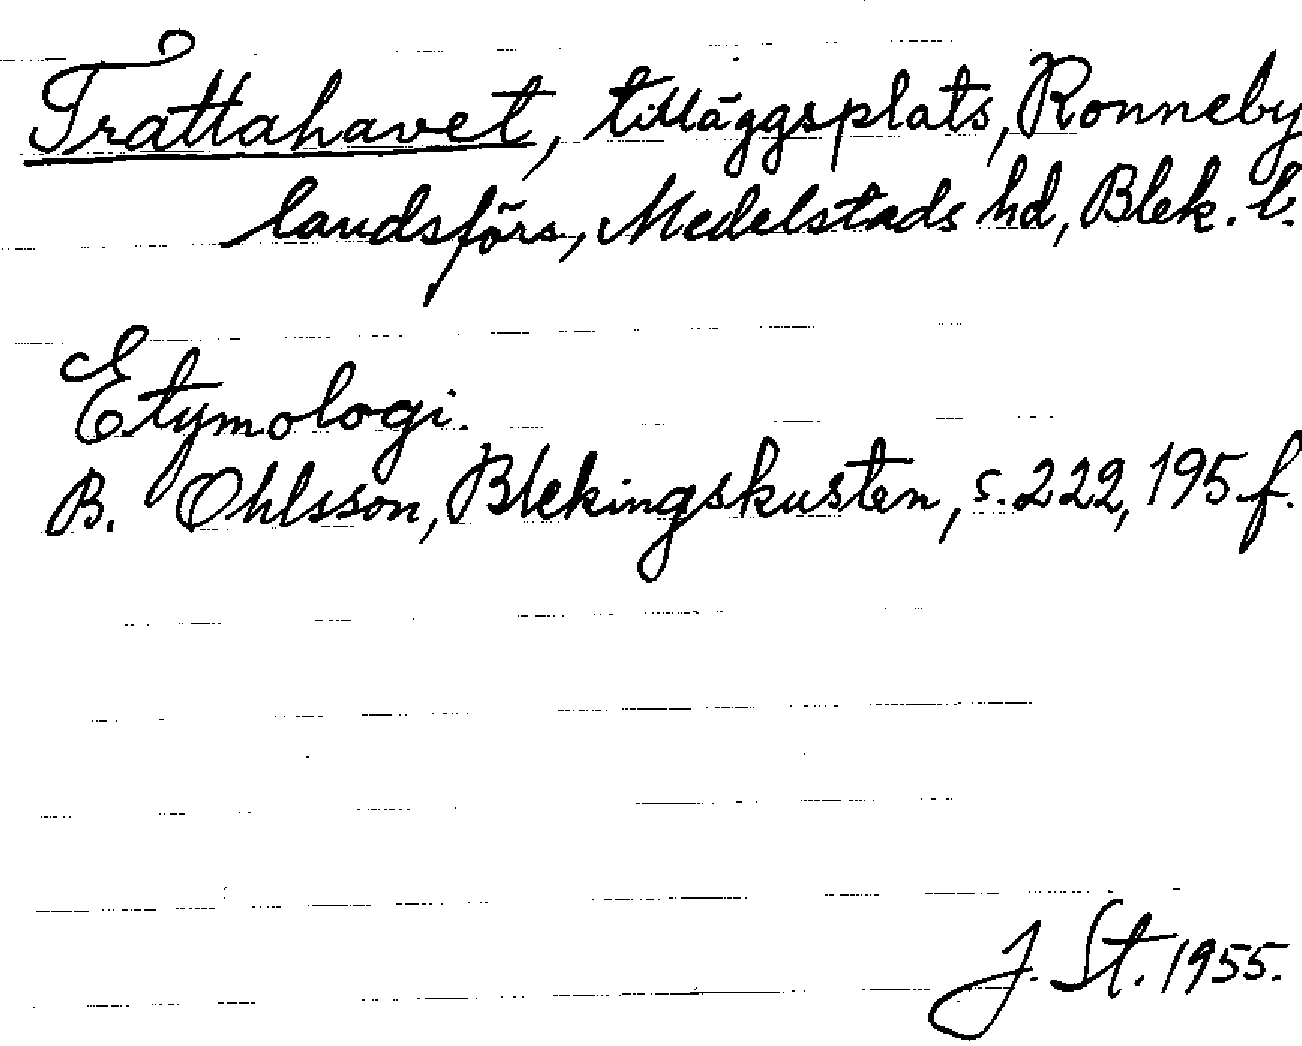 Trattahavet, tilläggsplats, Ronneby
landsförs, Medelstads hd, Blek. l.
Etymologi.
B. Ohlsson, Blekingskusten, s. 222, 195 f.
J. St. 1955.